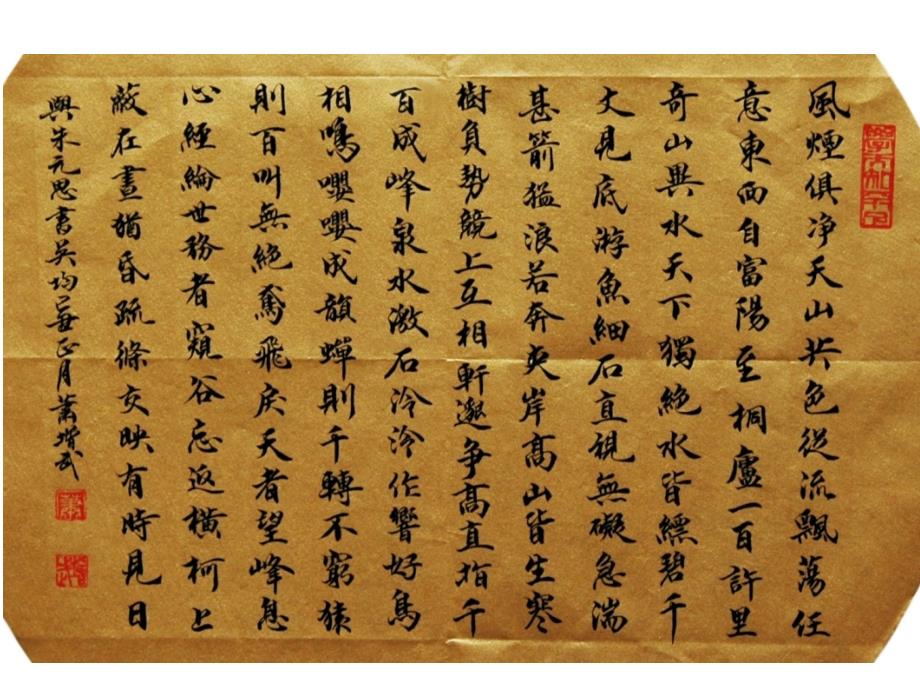 風煙俱净天山共色從流飄蕩任
意東西自富陽至桐廬一百許里
奇山異水天下獨絶水皆縹碧千
丈見底游魚細石直視無礙急湍
甚箭猛浪若奔夾岸高山皆生寒
樹負勢競上互相軒邈争高直指千
百成峰泉水激石泠泠作響好鳥
相鳴嚶嚶成韻蟬則千轉不窮猿
則百叫無絶飛戾天者望峰息
心經綸世務者窺谷忘返橫柯上
蔽在晝猶昏疏條交映有時見日
與朱元思書吳均正月蕭增武